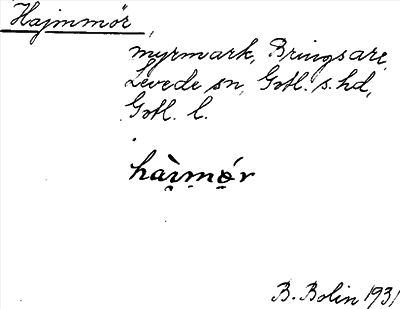 Hajmmör,
myrmark, Bringsarve,
Levede sn, Gotl. s. hd,
Gotl. l.
hàı̯mǿr
B. Bolin 1931